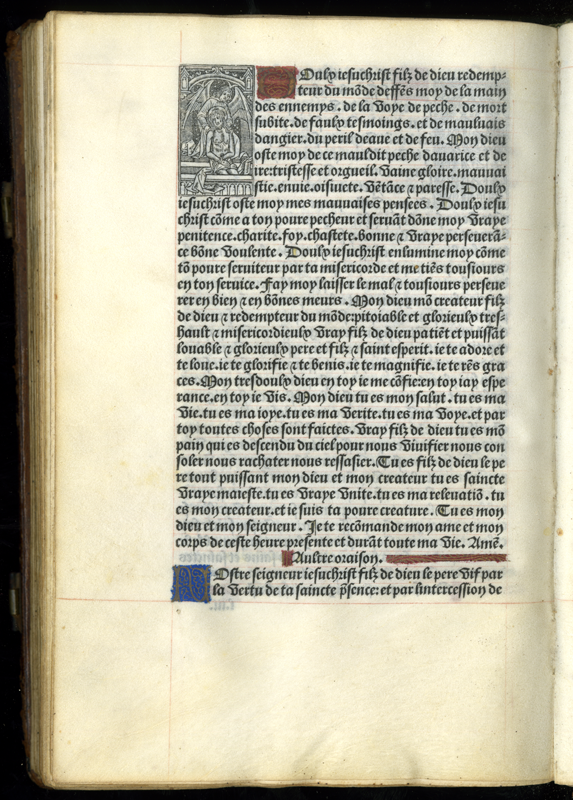 Doulx iesuchrist filz de dieu redemp-
teur du mõde deffẽs moy de la main
des ennemys . de la voye de peche . de mort
subite . de faulx tesmoings . et de mauluais
dangier . du peril deaue et de feu. Mon dieu
oste moy de ce mauldit peche dauarice et de
ire: tristesse et orgueil. vaine gloire. mauuai
stie. enuie. oisiuete. vẽtãce ⁊ paresse. Doulx
iesuchrist oste moy mes mauuaises pensees . Doulx iesu
christ cõme a ton poure pecheur et seruãt dõne moy vraye
penitence. charite. foy. chastete. bonne ⁊ vraye perseuerã-
ce bõne voulente . Doulx iesuchrist enlumine moy cõme
tõ poure seruiteur par ta misericorde et me tiẽs tousiours
en ton seruice. Fay moy laisser le mal ⁊ tousiours perseue
rer en bien ⁊ en bõnes meurs . Mon dieu mõ createur filz
de dieu ⁊ redempteur du mõde: pitoiable et glorieux tres-
hault ⁊ misericordieux vray filz de dieu patiẽt et puissãt
louable ⁊ glorieux pere et filz ⁊ saint esperit. ie te adore et
te loue. ie te glorifie ⁊ te benis. ie te magnifie. ie te rẽs gra
ces. Mon tresdoulx dieu en toy ie me cõfie: en toy iay espe
rance. en toy ie vis. Mon dieu tu es mon salut . tu es ma
vie. tu es ma ioye. tu es ma verite. tu es ma voye. et par
toy toutes choses sont faictes. vray filz de dieu tu es mõ
pain qui es descendu du ciel pour nous viuifier nous con
soler nous rachater nous ressasier. Tu es filz de dieu le pe
re tout puissant mon dieu et mon createur tu es saincte
vraye maieste. tu es vraye vnite. tu es ma releuatiõ . tu
es mon createur. et ie suis ta poure creature. Tu es mon
dieu et mon seigneur . Je te recõmande mon ame et mon
corps de ceste heure presente et durãt toute ma vie. Amẽ.
Aultre oraison.
Nostre seigneur iesuchrist filz de dieu le pere vif par
la vertu de ta saincte p̃sence: et par lintercession de